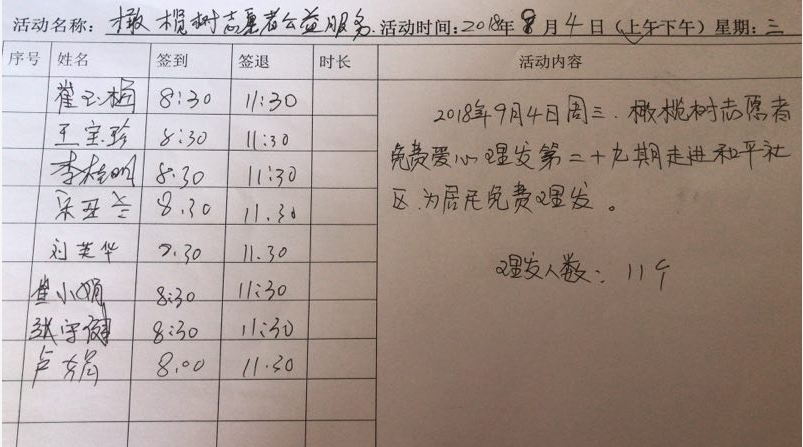 活动名称: 橄榄树志愿者公益服务. 活动时间: 2018年8月4日 (上午下午) 星期: 三
序号 姓名 签到 签退 时长 活动内容
崔玉娟 8:30 11:30
王宝珍 8:30 11:30
李桂明 8:30 11:30
宋亚兰 8.30 11.30
刘英华 7.30 11.30
崔小娟 8:30 11:30
张守健 8:30 11:30
卢 8.00 11.30
2018年9月4日周三.橄榄树志愿者
免费爱心理发第二十九期走进和平社
区.为居民免费理发。
理发人数: 11个